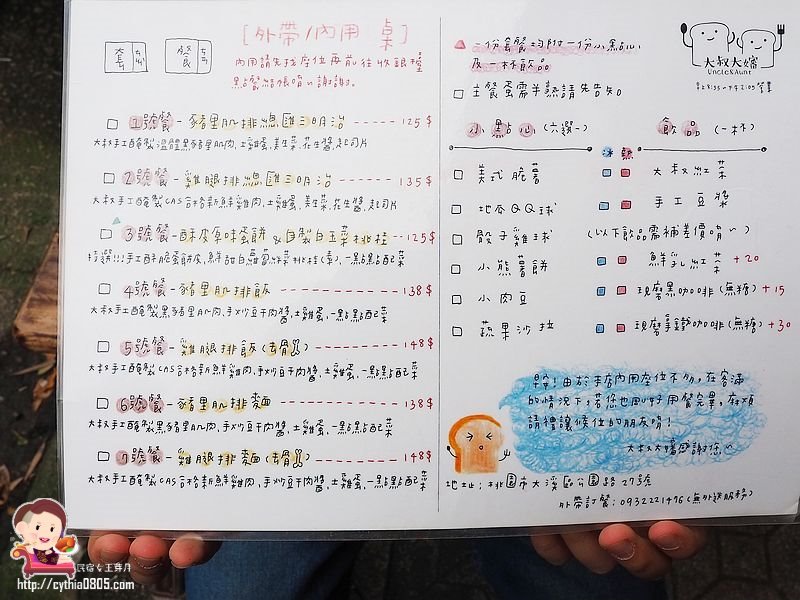 [外帶/內用 桌]
套 餐
內用請先找座位再前往收銀檯
點餐結帳唷~謝謝。
1號餐-豬里肌排總匯三明治 ------ 125$
大叔手工醃製溫體黑豬里肌肉、土雞蛋、美生菜、花生醬、起司片
2號餐-雞腿排總匯三明治 ------ 135$
大叔手工醃製CAS合格新鮮雞肉、土雞蛋、美生菜、花生醬、起司片
3號餐-酥皮原味蛋餅&自製白玉菜排捲--125$
特選!!!手工酥脆蛋餅皮、鮮甜白蘿蔔絲菜排捲(素)、一點點配菜
4號餐-豬里肌排飯 ------ 138$
大叔手工醃製黑豬里肌肉、手炒豆干肉醬、土雞蛋、一點點配菜
5號餐-雞腿排飯(去骨) ------ 148$
大叔手工醃製CAS合格新鮮雞肉、手炒豆干肉醬、土雞蛋、一點點配菜
6號餐-豬里肌排麵 ------ 138$
大叔手工醃製黑豬里肌肉、手炒豆干肉醬、土雞蛋、一點點配菜
7號餐-雞腿排麵(去骨) ------ 148$
大叔手工醃製CAS合格新鮮雞肉、手炒豆干肉醬、土雞蛋、一點點配菜
一份套餐均附一份小點心
及一杯飲品
主餐蛋需半熟請先告知
大叔大嬸
Uncle&Aunt
小點心(六選一)
美式脆薯
地瓜QQ球
骰子雞球
小熊薯餅
小肉豆
蔬果沙拉
飲品(一杯)
冰 熱
大叔紅茶
手工豆漿
(以下飲品需補差價唷~)
鮮乳紅茶 +20
現磨黑咖啡(無糖) +15
現磨拿鐵咖啡(無糖) +30
由於本店內用座位不多,在客滿
的情況下,若您也剛好用餐完畢,麻煩
請禮讓候位的朋友唷!
大叔大嬸感謝您~
地址:桃園市大溪區公園路27號
外帶訂餐:0932221476(無外送服務)
民宿女王芽月
http://cythia0805.com